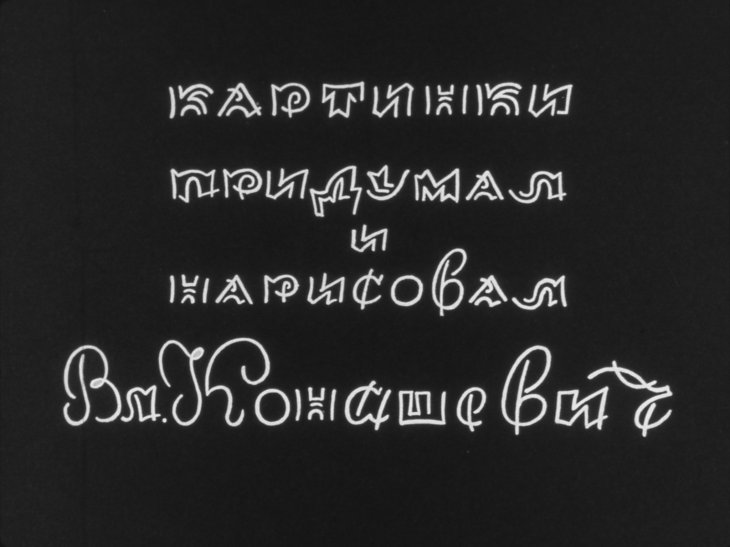 КАРТИНКИ
ПРИДУМАЛ
И
НАРИСОВАЛ
Вл. Конашевич